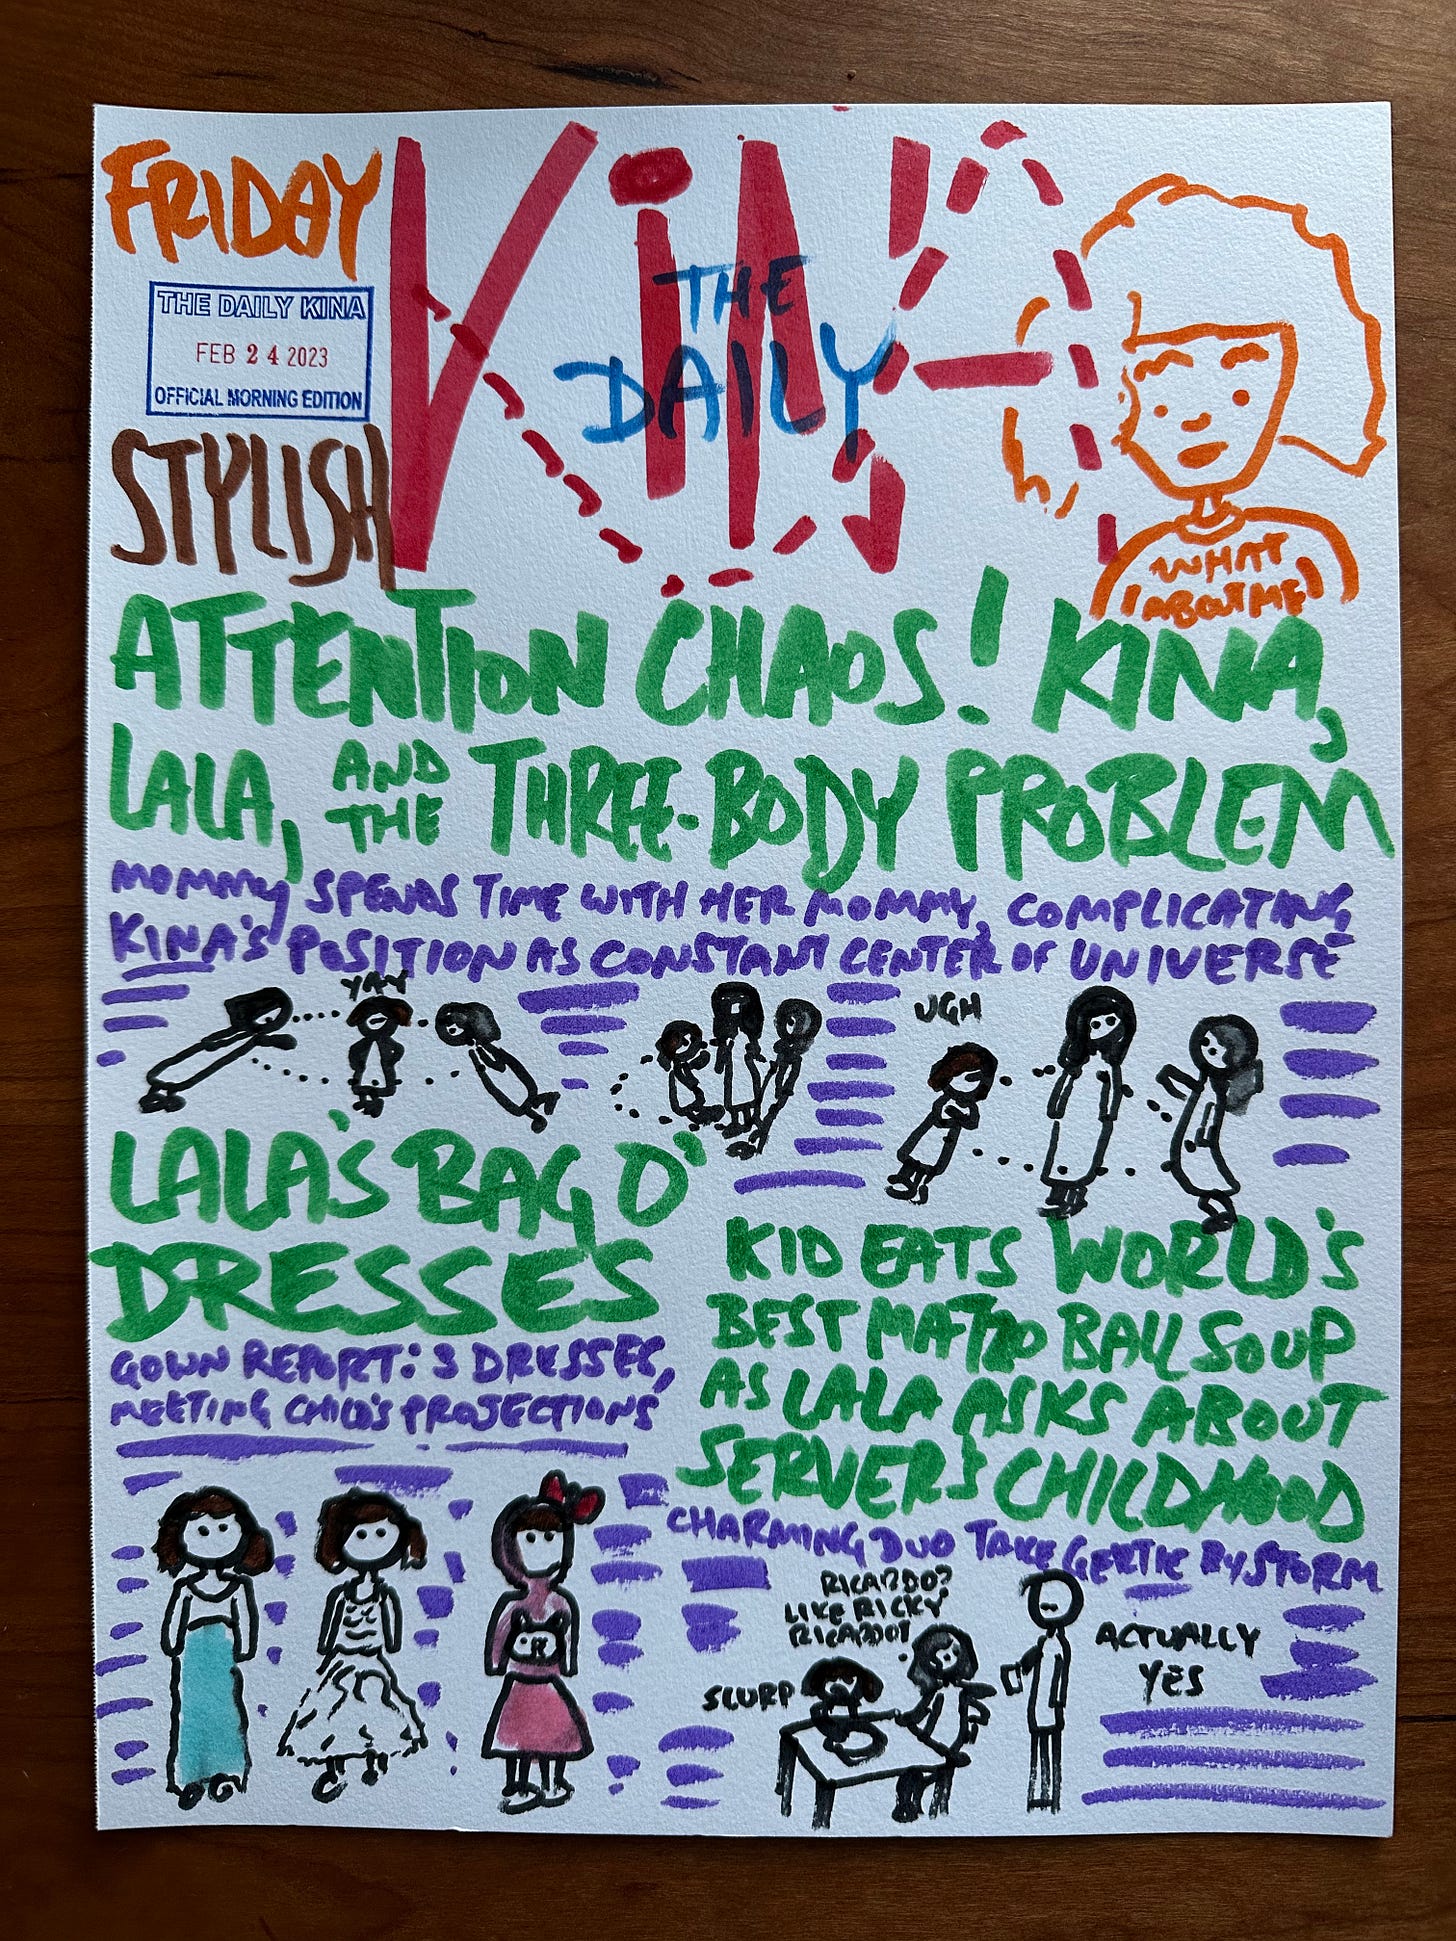 FRIDAY
THE DAILY KINA
FEB 24 2023
OFFICIAL MORNING EDITION
STYLISH
THE
DAILY
KiNA
WHAT
ABOUT ME
ATTENTION CHAOS! KINA,
LALA, AND THE THREE-BODY PROBLEM
MOMMY SPENDS TIME WITH HER MOMMY, COMPLICATING
KINA'S POSITION AS CONSTANT CENTER OF UNIVERSE
YAY
UGH
LALA'S BAG O'
DRESSES
GOWN REPORT: 3 DRESSES,
MEETING CHILD'S PROJECTIONS
KID EATS WORLD'S
BEST MATZO BALL SOUP
AS LALA ASKS ABOUT
SERVER'S CHILDHOOD
CHARMING DUO TAKE GERTIE BY STORM
RICARDO?
LIKE RICKY
RICARDO?
SLURP
ACTUALLY
YES